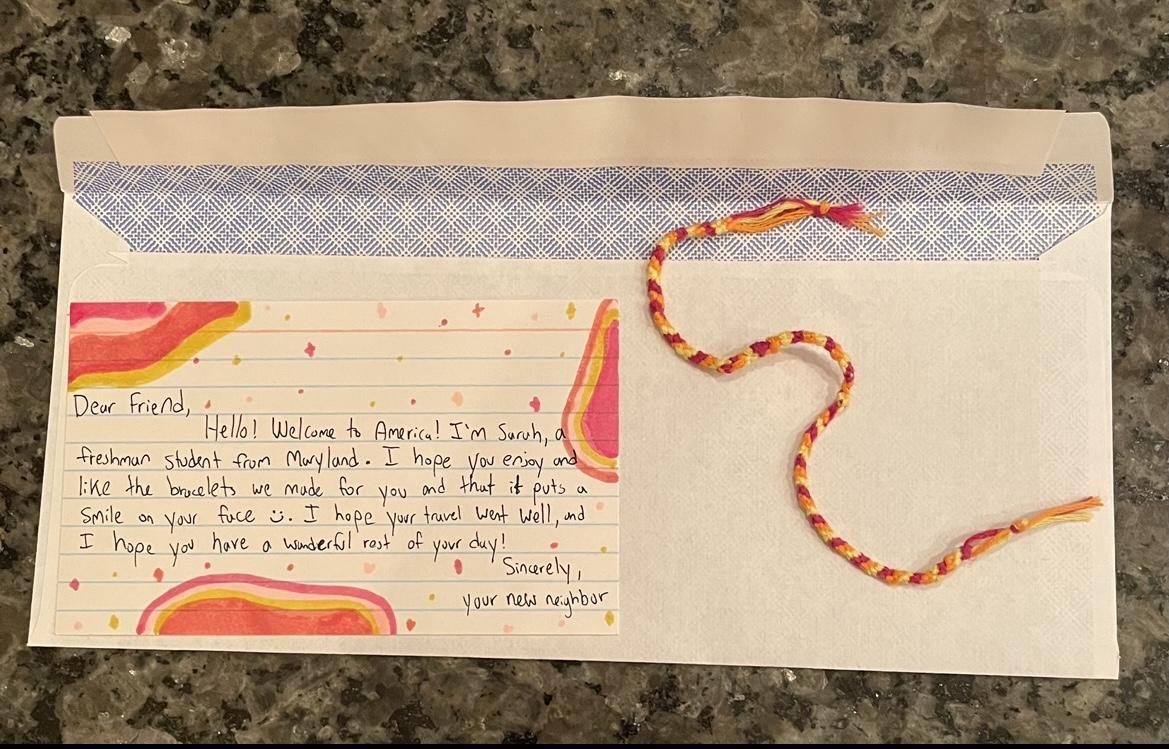 Dear Friend,
Hello! Welcome to America! I'm Sarah, a
freshman student from Maryland. I hope you enjoy and
like the bracelets we made for you and that it puts a
smile on your face :). I hope your travel went well, and
I hope you have a wonderful rest of your day!
Sincerely,
your new neighbor